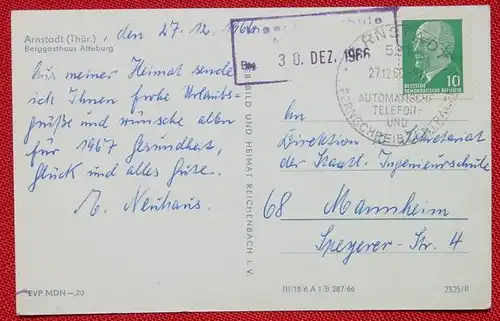 Arnstadt (Thür.), den 27.12.1966
Berggasthaus Alteburg
Aus meiner Heimat sende
ich Ihnen frohe Urlaubs-
grüße und wünsche allen
für 1967 Gesundheit,
Glück und alles Gute.
E. Neuhaus.
EVP MDN -,20
BILD UND HEIMAT REICHENBACH i. V.
30. DEZ. 1966
ARNSTADT
27.12.66
AUTOMATISCHE
TELEFON-
UND
FERNSCHREIBZENTRALE
DEUTSCHE
DEMOKRATISCHE REPUBLIK
10
An
Direktion Sekretariat
der Staatl. Ingenieurschule
68 Mannheim
Speyerer-Str. 4
III/18 6 A 1/B 287/66
2325/II